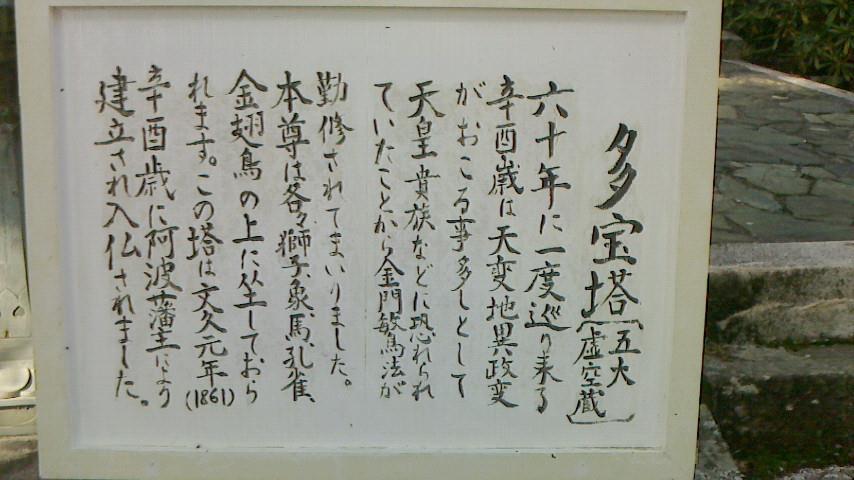 多宝塔〔五大虚空蔵〕
六十年に一度巡り来る
辛酉歳は天変地異政変
がおこる事多しとして
天皇貴族などに恐れられ
ていたことから金門敏鳥法が
勤修されてまいりました。
本尊は各々獅子、象、馬、孔雀、
金翅鳥の上に坐しておら
れます。この塔は文久元年(1861)
辛酉歳に阿波藩主により
建立され入仏されました。